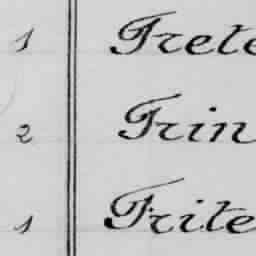 1 Frete
2 Frin
1 Frite